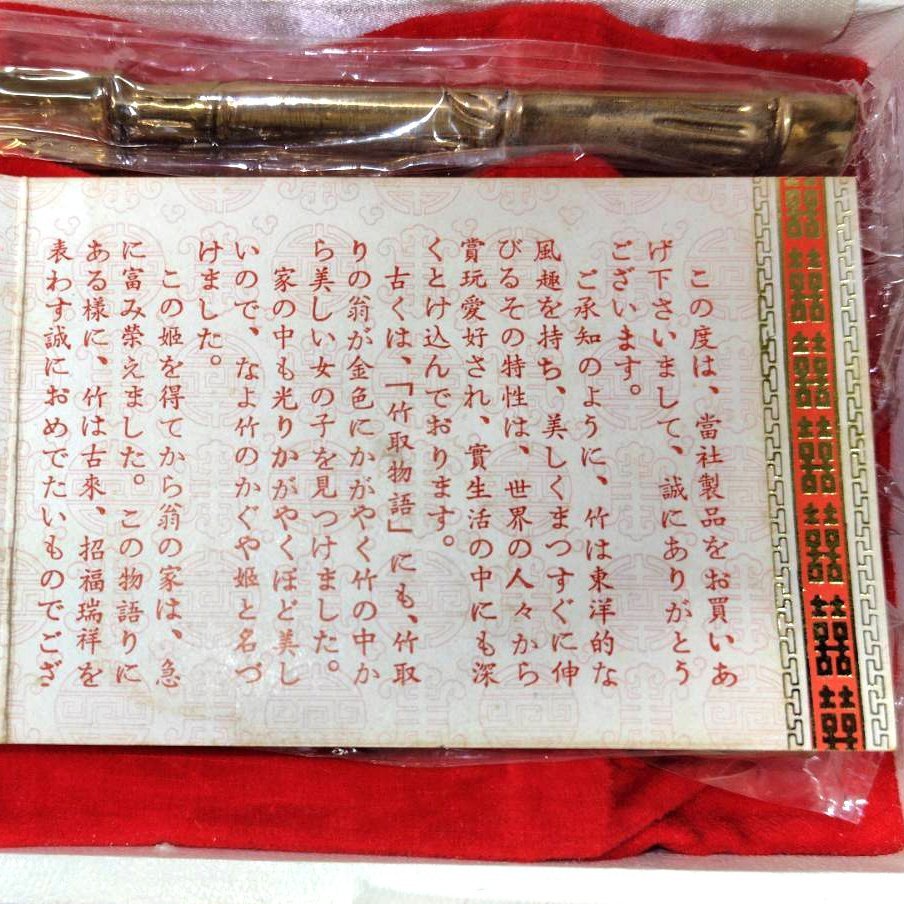 この度は、當社製品をお買いあ
げ下さいまして、誠にありがとう
ございます。
ご承知のように、竹は東洋的な
風趣を持ち、美しくまつすぐに伸
びるその特性は、世界の人々から
賞玩愛好され、實生活の中にも深
くとけ込んでおります。
古くは、「竹取物語」にも、竹取
りの翁が金色にかがやく竹の中か
ら美しい女の子を見つけました。
家の中も光りかがやくほど美し
いので、なよ竹のかぐや姫と名づ
けました。
この姫を得てから翁の家は、急
に富み榮えました。この物語りに
ある様に、竹は古來、招福瑞祥を
表わす誠におめでたいものでござ